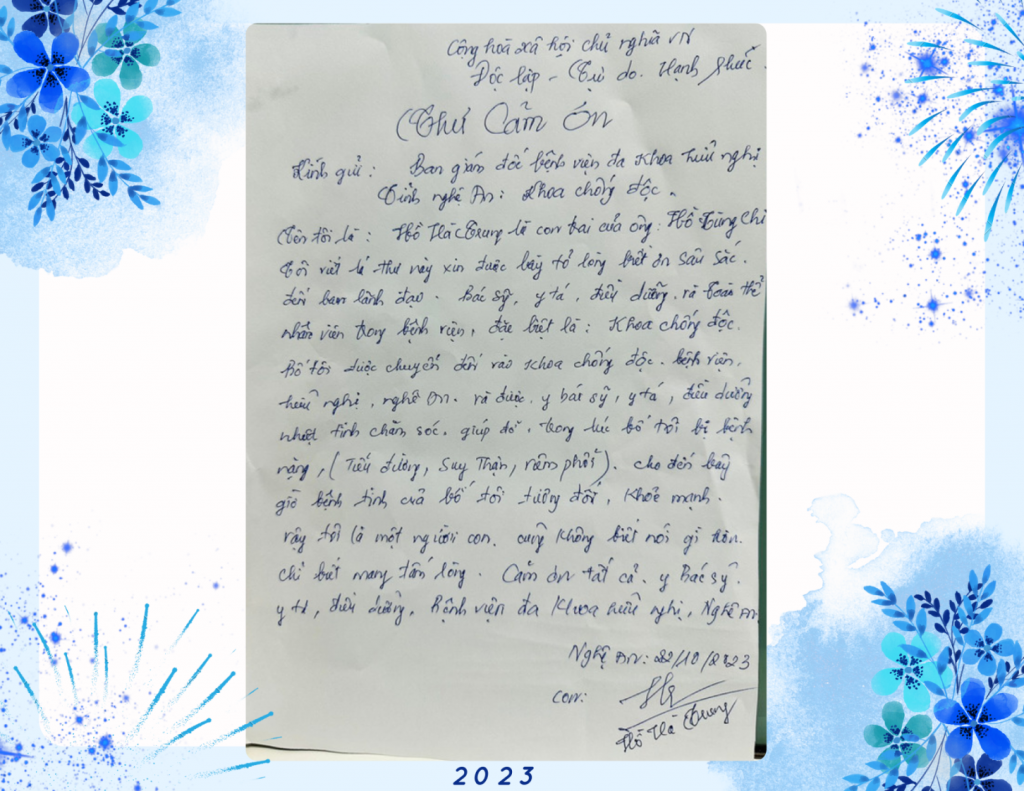 Cộng hoà xã hội chủ nghĩa VN
Độc lập - Tự do. Hạnh phúc.
Thư Cảm ơn
Kính gửi : Ban giám đốc bệnh viện đa khoa hữu nghị
Tỉnh nghệ An : Khoa chống độc.
Tên tôi là : Hồ Hà Trung là con trai của ông : Hồ Tùng Chi
Tôi viết lá thư này xin được bày tỏ lòng biết ơn sâu sắc.
đến ban lãnh đạo. Bác sỹ, y tá, điều dưỡng, và toàn thể
nhân viên trong bệnh viện, đặc biệt là : Khoa chống độc.
Bố tôi được chuyển đến vào khoa chống độc. bệnh viện.
hữu nghị. nghệ an. và được. y bác sỹ, y tá, điều dưỡng
nhiệt tình chăm sóc. giúp đỡ. trong lúc bố tôi bị bệnh
nặng, (Tiểu đường, Suy Thận, viêm phổi). cho đến bây
giờ bệnh tình của bố tôi tương đối, khoẻ mạnh.
vậy tôi là một người con. cũng không biết nói gì hơn.
chỉ biết mang tấm lòng. Cảm ơn tất cả. y Bác sỹ.
y tá, điều dưỡng, Bệnh viện đa khoa hữu nghị, Nghệ An
Nghệ An: 22/10/2023
con:
Hồ Hà Trung
2023